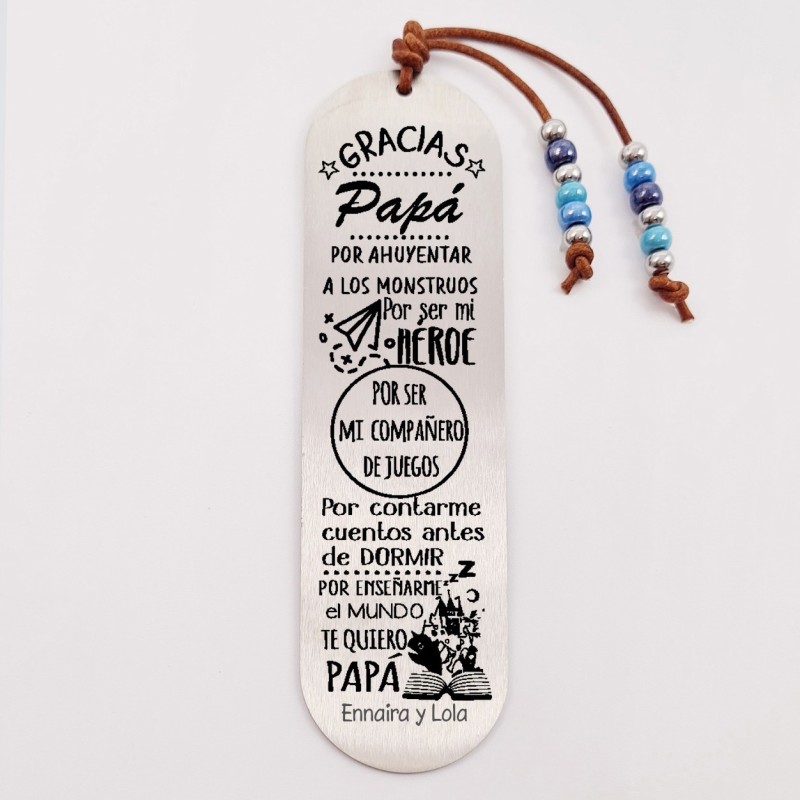 GRACIAS
Papá
POR AHUYENTAR
A LOS MONSTRUOS
Por ser mi
HÉROE
POR SER
MI COMPAÑERO
DE JUEGOS
Por contarme
cuentos antes
de DORMIR
zzZ
POR ENSEÑARME
el MUNDO
TE QUIERO
PAPÁ
Ennaira y Lola